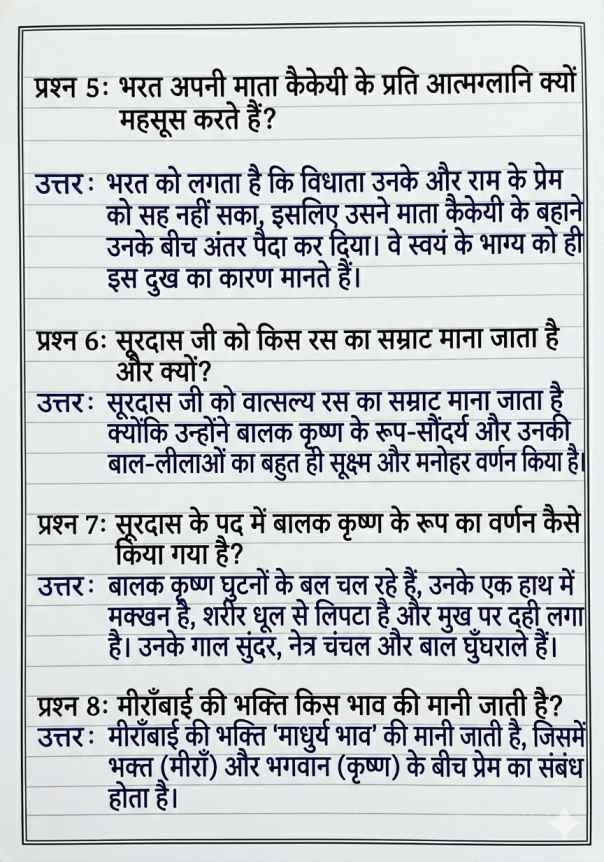 प्रश्न 5: भरत अपनी माता कैकेयी के प्रति आत्मग्लानि क्यों
महसूस करते हैं?
उत्तर: भरत को लगता है कि विधाता उनके और राम के प्रेम
को सह नहीं सका, इसलिए उसने माता कैकेयी के बहाने
उनके बीच अंतर पैदा कर दिया। वे स्वयं के भाग्य को ही
इस दुख का कारण मानते हैं।
प्रश्न 6: सूरदास जी को किस रस का सम्राट माना जाता है
और क्यों?
उत्तर: सूरदास जी को वात्सल्य रस का सम्राट माना जाता है
क्योंकि उन्होंने बालक कृष्ण के रूप-सौंदर्य और उनकी
बाल-लीलाओं का बहुत ही सूक्ष्म और मनोहर वर्णन किया है।
प्रश्न 7: सूरदास के पद में बालक कृष्ण के रूप का वर्णन कैसे
किया गया है?
उत्तर: बालक कृष्ण घुटनों के बल चल रहे हैं, उनके एक हाथ में
मक्खन है, शरीर धूल से लिपटा है और मुख पर दही लगा
है। उनके गाल सुंदर, नेत्र चंचल और बाल घुँघराले हैं।
प्रश्न 8: मीराँबाई की भक्ति किस भाव की मानी जाती है?
उत्तर: मीराँबाई की भक्ति ‘माधुर्य भाव’ की मानी जाती है, जिसमें
भक्त (मीराँ) और भगवान (कृष्ण) के बीच प्रेम का संबंध
होता है।